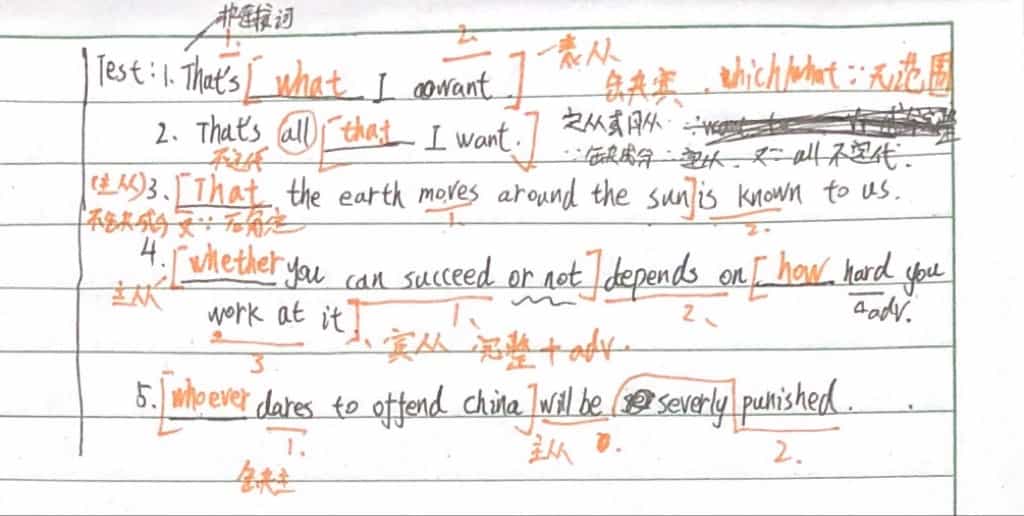 非连接词
1. 2.
Test: 1. That's [ what I want. ] 表从
缺宾. which/what ∵无范围
2. That's all [ that I want. ] 定从或同从
不定代 ∵缺成分 ∴定从. 又∵all 不定代.
(主从) 3. [ That the earth moves around the sun ] is known to us.
不缺成分 又∵ 1. 2.
4. [ whether you can succeed or not ] depends on [ how hard you
主从 1、 2、 adv.
work at it ]
3 宾从 完整+adv.
5. [ whoever dares to offend china ] will be severly punished.
1. 主从 2.
缺主